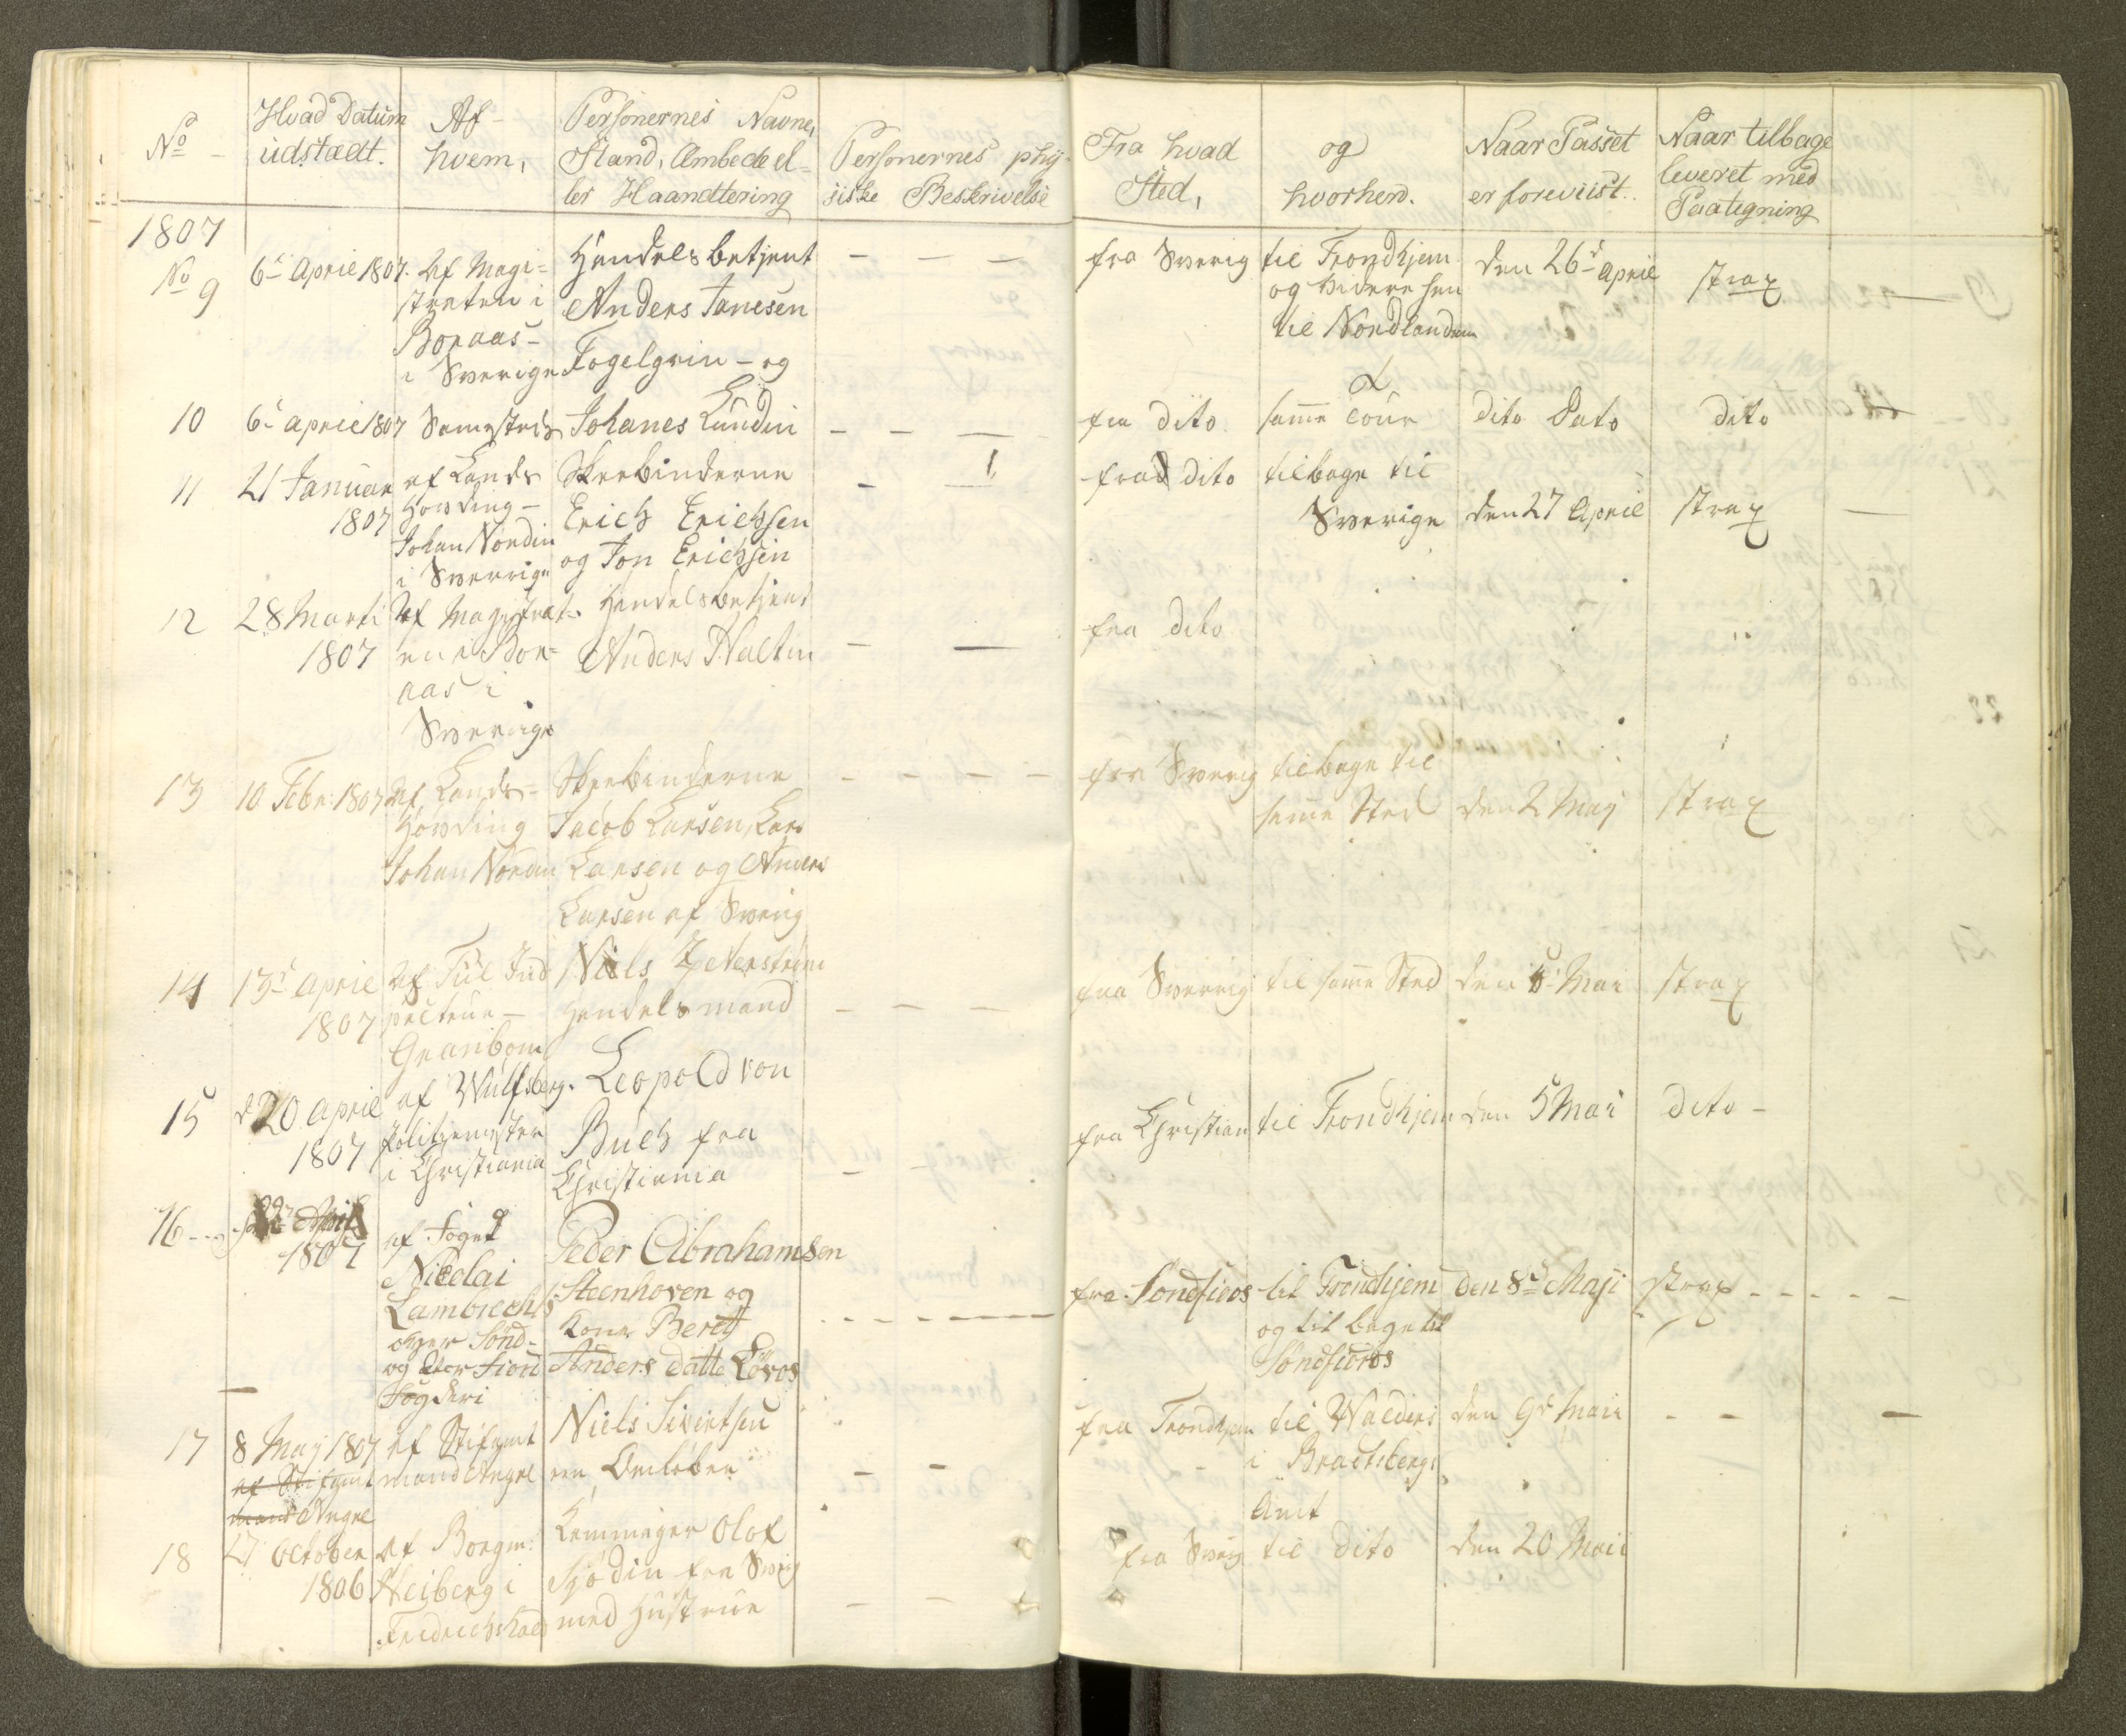 No
Hvad Datum
udstædt.
Af
hvem,
Personernes Navne,
Stand, Embede el-
ler Haandtering
Personernes phy-
siske Beskrivelse
Fra hvad
Sted,
og
hvorhen.
Naar Passet
er foreviist.
Naar tilbage
leveret med
Paategning
1807
No 9
6te April 1807.
Af Magi-
straten i
Boraas -
i Sverige
Handelsbetjent
Anders Janesen
Fogelgrin - og
fra Sverig
til Trondhjem
og videre hen
til Nordlandene
den 26d April
strax
10
6te April 1807
Samesteds
Johanes Lundin
fra dito
samme Tour
dito Dato
dito
11
21 Januar
1807
af Lands
Høvding -
Johan Nordin
i Sverrige
Skrebinderne
Erich Erichsen
og Jon Erichsen
fra dito
tilbage til
Sverige
den 27 April
strax
12
28 Marti
1807
Af Magistrat-
en i Bor-
aas i
Sverige
Handelsbetjent
Anders Haltin
fra dito
13
10 Febr: 1807
Af Lands-
Høvding
Johan Nordin
Skrebinderne
Jacob Larsen, Lars
Larsen og Anders
Larsen af Sverig
fra Sverig
tilbage til
samme Sted
den 2 May
strax
14
13d April
1807
Af Tul Ind
pecteur -
Granbom
Niels Zeterstrøm
Handelsmand
fra Sverrig
til samme Sted
den 5 Mai
strax
15
d 20 April
1807
af Wulfsberg.
Politiemester
i Christiania
Leopold von
Buch fra
Christiania
fra Christian
til Trondhjem
den 5 Mai
dito -
16
1807
af Foged
Nicolai
Lambrechts
over Sønd-
og Ytter Fiord
Fogderi
Peder Abrahamsen
Steenhoven og
Kone Berett
Anders datte
fra Søndfiors
til Trondhjem
og tilbage til
Søndfiors
den 8d Maji
strax
17
8 May 1807
af Stiftamt
mand Angel
af Stiftamt
mand Angel
Niels Sivertsen
en Omløber
fra Trondhjem
til Walders
i Bradtsbergs
Amt
den 9d Maii
18
27 October
1806
Af Borgm:
Heiberg i
Fridrichshald
Lemmager Olof
Sjødin fra Sverig
med Hustrue
fra Sverig
til dito
den 20 Maii